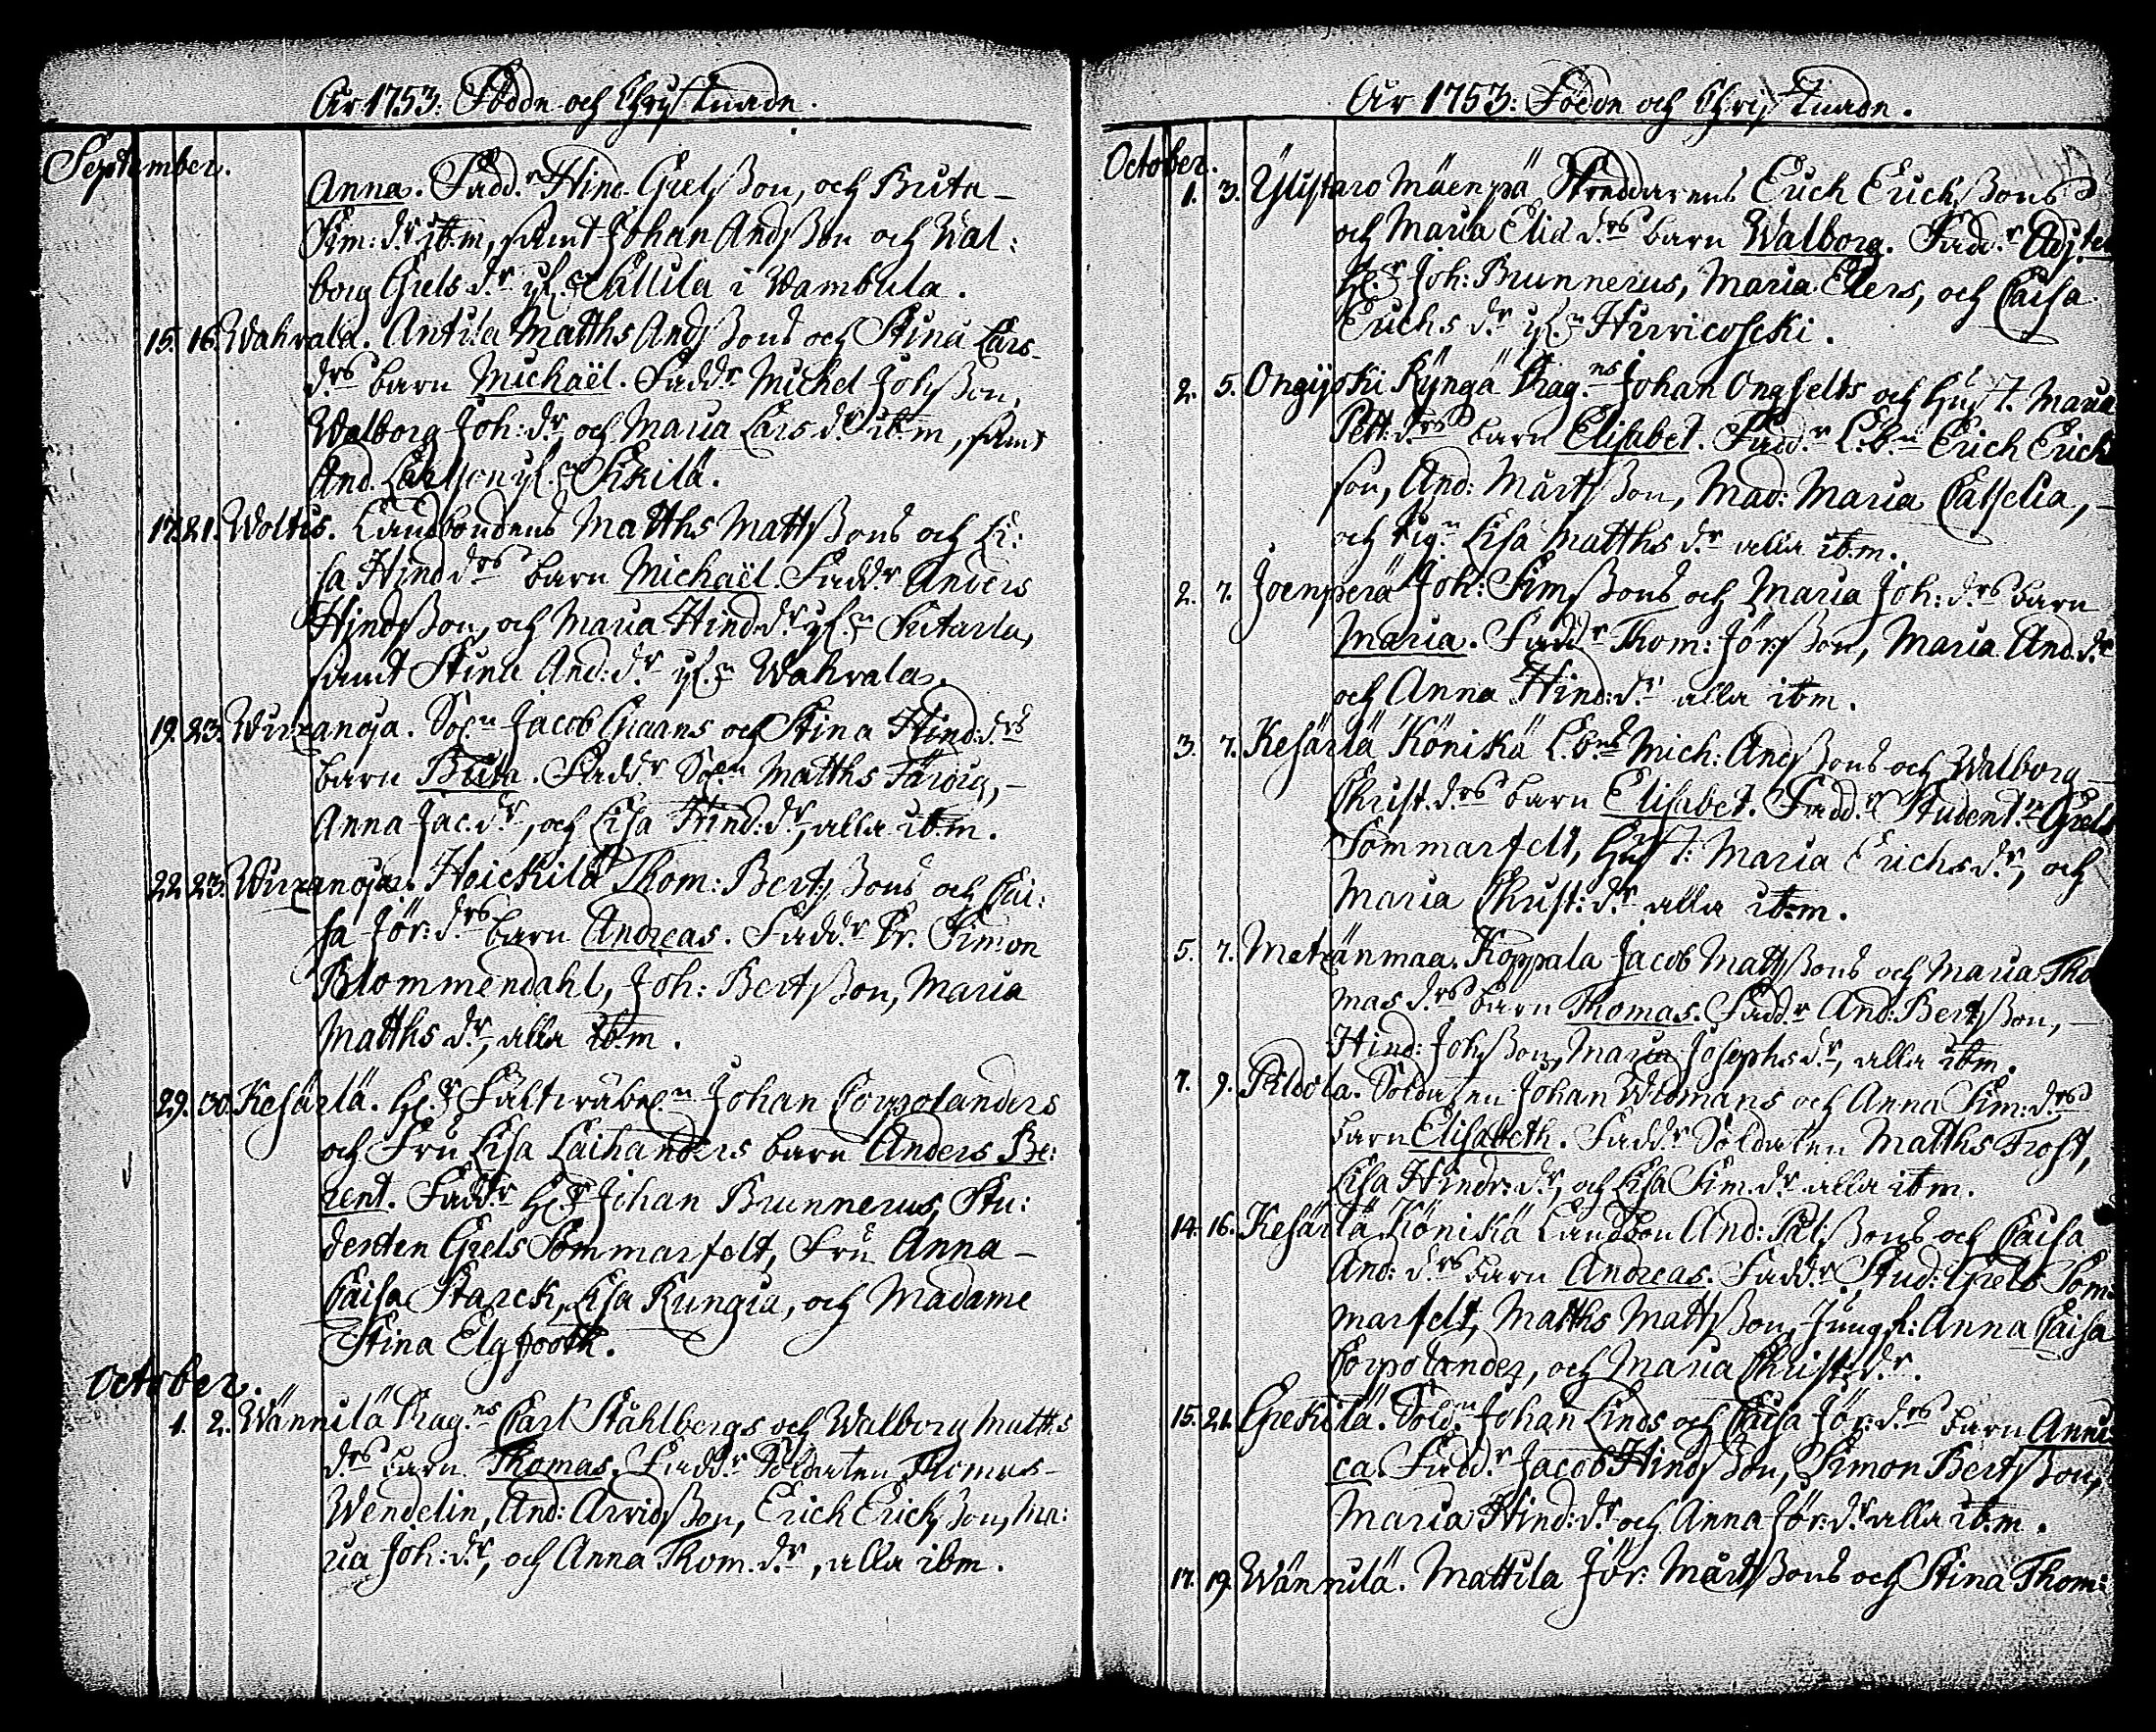 År 1753. Födde och Christnade.
September.
Anna. Fadd.r Hind. Grelsson, och Brita
Sim: d.r ib:m, samt Johan Andsson och Wal:
borg Grels d.r ifr. Sallila i Wambula.
15. 16. Wahvala. Antila Matths Andssons och Stina Lars
d.rs barn Michaël. Fadd.r Michel Johsson,
Walborg Joh: d.r, och Maria Lars d.r ib:m, samt
And. Carlson ifr.
17. 21. Woltis. Landbondens Matths Mattssons och Li:
sa Hind d.rs barn Michaël. Fadd.r Anders
Hindsson, och Maria Hind. d.r ifr.
samt Stina And: d.r ifr. Wahvala.
19. 23. Wirzanoja. Sol.n Jacob och Stina Hind: d.rs
barn Brita. Fadd.r Sol.en Matths
Anna Jac. d.r, och Lisa Hind: d.r, alla ib:m.
22. 23. Wirzanoja. Heickilä Thom: Bertssons och Cai:
sa Jör: d.rs barn Andreas. Fadd.r Simon
Blommendahl, Joh: Bertsson, Maria
Matths d.r, alla ib:m.
29. 30. Kesärlä. H:r Fältwäbel.n Johan Corpolanders
och Fru Lisa Laihanders barn Anders Be:
rent. Fadd.r H:r Johan Brunnerus, Stu:
denten Grels Sommarfelt, Fru Anna
Caisa Starck, Lisa Rungia, och Madame
Stina Elgfooth.
October.
1. 2. Wännilä Drag.ns Carl Ståhlbergs och Walborg Matths
d.rs barn Thomas. Fadd.r Soldaten Thomas
Wendelin, And: Arvidsson, Erich Erichsson, Ma:
ria Joh: d.r, och Anna Thom. d.r, alla ibm.
År 1753: Födde och Christnade.
October.
1. 3. Ylistaro Mäenpä Skreddarens Erich Erichssons
och Maria Elid d.rs barn Walborg. Fadd.r Adj:
H:r Joh: Brunnerus, Maria Elers, och Caisa
Erichs d.r ifr.
2. 5. Ongijoki Kyngä Drag.ns Johan Ongfelts och Hust. Maria
Pett: d.rs barn Elisabet. Fadd.r L:b:n Erich Erich
son, And: Mårtsson, Mad: Maria
och Pig.n Lisa Matths d.r alla ib:m.
2. 7. Joenperä Joh: Simssons och Maria Joh: d.rs barn
Maria. Fadd.r Thom: Jörsson, Maria And. d.r
och Anna Hind: d.r alla ibm.
3. 7. Kesärlä Könikä L.b.ns Mich: Andssons och Walborg
Christ. d.rs barn Elisabet. Fadd.r Student.n Grels
Sommarfelt, Hust: Maria Erichs d.r, och
Maria Christ: d.r alla ib:m.
5. 7. Metzänmaa. Koppala Jacob Mattssons och Maria Tho
mas d.rs barn Thomas. Fadd.r And. Bertsson,
Hind: Johsson, Maria Josephs d.r, alla ibm.
7. 9. Soldaten Johan Widmans och Anna Sim: d.rs
barn Elisabeth. Fadd.r Soldaten Matths Frost,
Lisa Hindr: d.r, och Lisa Sim: d.r alla ibm.
14. 16. Kesärlä Könikä Landbon And: och Caisa
And: d.rs barn Andreas. Fadd.r Stud: Grels Som
marfelt, Matths Mattsson, Jungf: Anna Caisa
Corpolander, och Maria Christ: d.r.
15. 21. Grekilä. Sold.n Johan Linds och Caisa Jör: d.rs barn Anni
ca. Fadd.r Jacob Hindsson, Simon Bertsson,
Maria Hind: d.r och Anna Jör: d.r alla ib:m.
17. 19. Wännilä. Mattila Jör: Mårtssons och Stina Thom: